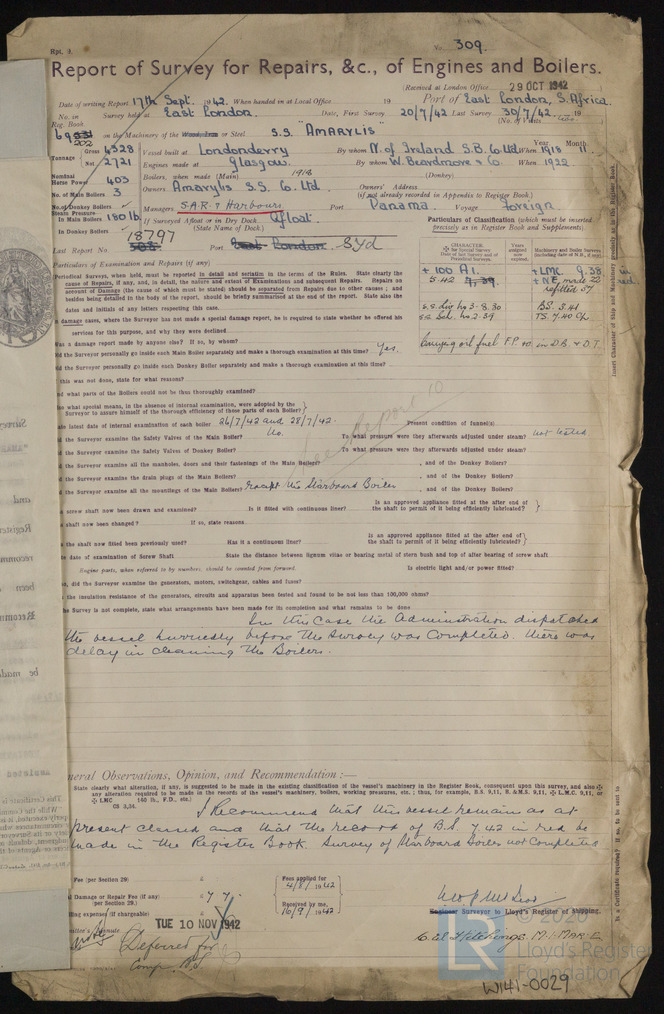 Rpt. 9.
No. 309.
Report of Survey for Repairs, &c., of Engines and Boilers.
(Received at London Office 29 OCT 1942
Date of writing Report 17th Sept. 1942. When handed in at Local Office 19 Port of East London, S. Africa.
No. in Reg. Book Survey held at East London. Date, First Survey 20/7/42 Last Survey 30/7/42. 19
(No. of Visits
on the Machinery of the Wood, Iron or Steel S.S. "AMARYLIS"
Tonnage Gross 4328 Vessel built at Londonderry By whom N. of Ireland S.B. Co. Ltd. When 1918 Month 11
Net 2721 Engines made at Glasgow. By whom W. Beardmore & Co. When 1922
Nominal Horse Power 403 Boilers, when made (Main) 1918 (Donkey)
No. of Main Boilers 3 Owners Amarylis S.S. Co. Ltd. Owners' Address
(if not already recorded in Appendix to Register Book)
No. of Donkey Boilers Managers S.A.R. & Harbours Port Panama. Voyage Foreign
Steam Pressure in Main Boilers 180 lb If Surveyed Afloat or in Dry Dock Afloat.
(State Name of Dock.)
in Donkey Boilers
Particulars of Classification (which must be inserted precisely as in Register Book and Supplements).
Last Report No. 18797 Port East London Syd
Particulars of Examination and Repairs (if any)
CHARACTER.
+ 100 A1. + LMC 9.38
5.42 7.39. + N.E. made 22
refitted 37
S.S. Dub. No 3-8.30 BS. 3.41
TS. 7.40 CL
Carrying oil fuel F.P. in D.B. & D.T.
Periodical Surveys, when held, must be reported in detail and seriatim in the terms of the Rules. State clearly the
cause of Repairs, if any, and, in detail, the nature and extent of Examinations and subsequent Repairs. Repairs on
account of Damage (the cause of which must be stated) should be separated from Repairs due to other causes; and
besides being detailed in the body of the report, should be briefly summarised at the end of the report. State also the
dates and initials of any letters respecting this case.
In damage cases, where the Surveyor has not made a special damage report, he is required to state whether he offered his
services for this purpose, and why they were declined
Was a damage report made by anyone else? If so, by whom?
Did the Surveyor personally go inside each Main Boiler separately and make a thorough examination at this time? Yes.
Did the Surveyor personally go inside each Donkey Boiler separately and make a thorough examination at this time?
this was not done, state for what reasons?
what parts of the Boilers could not be thus thoroughly examined?
what special means, in the absence of internal examination, were adopted by the
Surveyor to assure himself of the thorough efficiency of those parts of each Boiler?
See Report 10
latest date of internal examination of each boiler 26/7/42 and 28/7/42. Present condition of funnel(s)
the Surveyor examine the Safety Valves of the Main Boiler? No. To what pressure were they afterwards adjusted under steam? not tested
the Surveyor examine the Safety Valves of Donkey Boiler? To what pressure were they afterwards adjusted under steam?
the Surveyor examine all the manholes, doors and their fastenings of the Main Boilers? , and of the Donkey Boilers?
the Surveyor examine the drain plugs of the Main Boilers? , and of the Donkey Boilers?
the Surveyor examine all the mountings of the Main Boilers? Except the Starboard Boiler , and of the Donkey Boilers?
screw shaft now been drawn and examined? Is it fitted with continuous liner? Is an approved appliance fitted at the after end of the shaft to permit of it being efficiently lubricated?
shaft now been changed? If so, state reasons
the shaft now fitted been previously used? Has it a continuous liner? Is an approved appliance fitted at the after end of the shaft to permit of it being efficiently lubricated?
date of examination of Screw Shaft State the distance between lignum vitæ or bearing metal of stern bush and top of after bearing of screw shaft
Engine parts, when referred to by numbers, should be counted from forward. Is electric light and/or power fitted?
so, did the Surveyor examine the generators, motors, switchgear, cables and fuses?
the insulation resistance of the generators, circuits and apparatus been tested and found to be not less than 100,000 ohms?
the Survey is not complete, state what arrangements have been made for its completion and what remains to be done
In this case the Administration dispatched
the vessel hurriedly before the Survey was completed. There was
delay in cleaning the Boilers.
General Observations, Opinion, and Recommendation:—
State clearly what alteration, if any, is suggested to be made in the existing classification of the vessel's machinery in the Register Book, consequent upon this survey, and also
any alteration required to be made in the records of the vessel's machinery, boilers, working pressures, etc.; thus, for example, B.S. 9,11, B.&M.S. 9,11, L.M.C. 9,11, or
LMC 140 lb., F.D., etc.)
CS 3,34.
I Recommend that this vessel remains as at
present classed and that the record of B.S. 7.42 in red be
made in the Register Book. Survey of Starboard Boiler not completed
Fee (per Section 29) £ Fees applied for
4/8/1942
Damage or Repair Fee (if any) £ 7 7.
(per Section 29.) Received by me,
travelling expenses (if chargeable) £ 10/9/1942
TUE 10 NOV 1942
Engineer Surveyor to Lloyd's Register of Shipping.
Deferred for
Comp. B.S.
© 2020
Lloyd's Register
Foundation
W141-0029